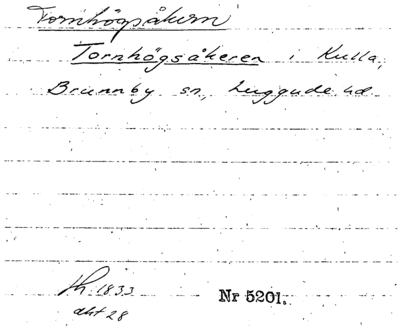 Tornhögsåkern
Tornhögsåkeren i Kulla,
Brunnby sn, Luggude hd.
1833
akt 28
Nr 5201.